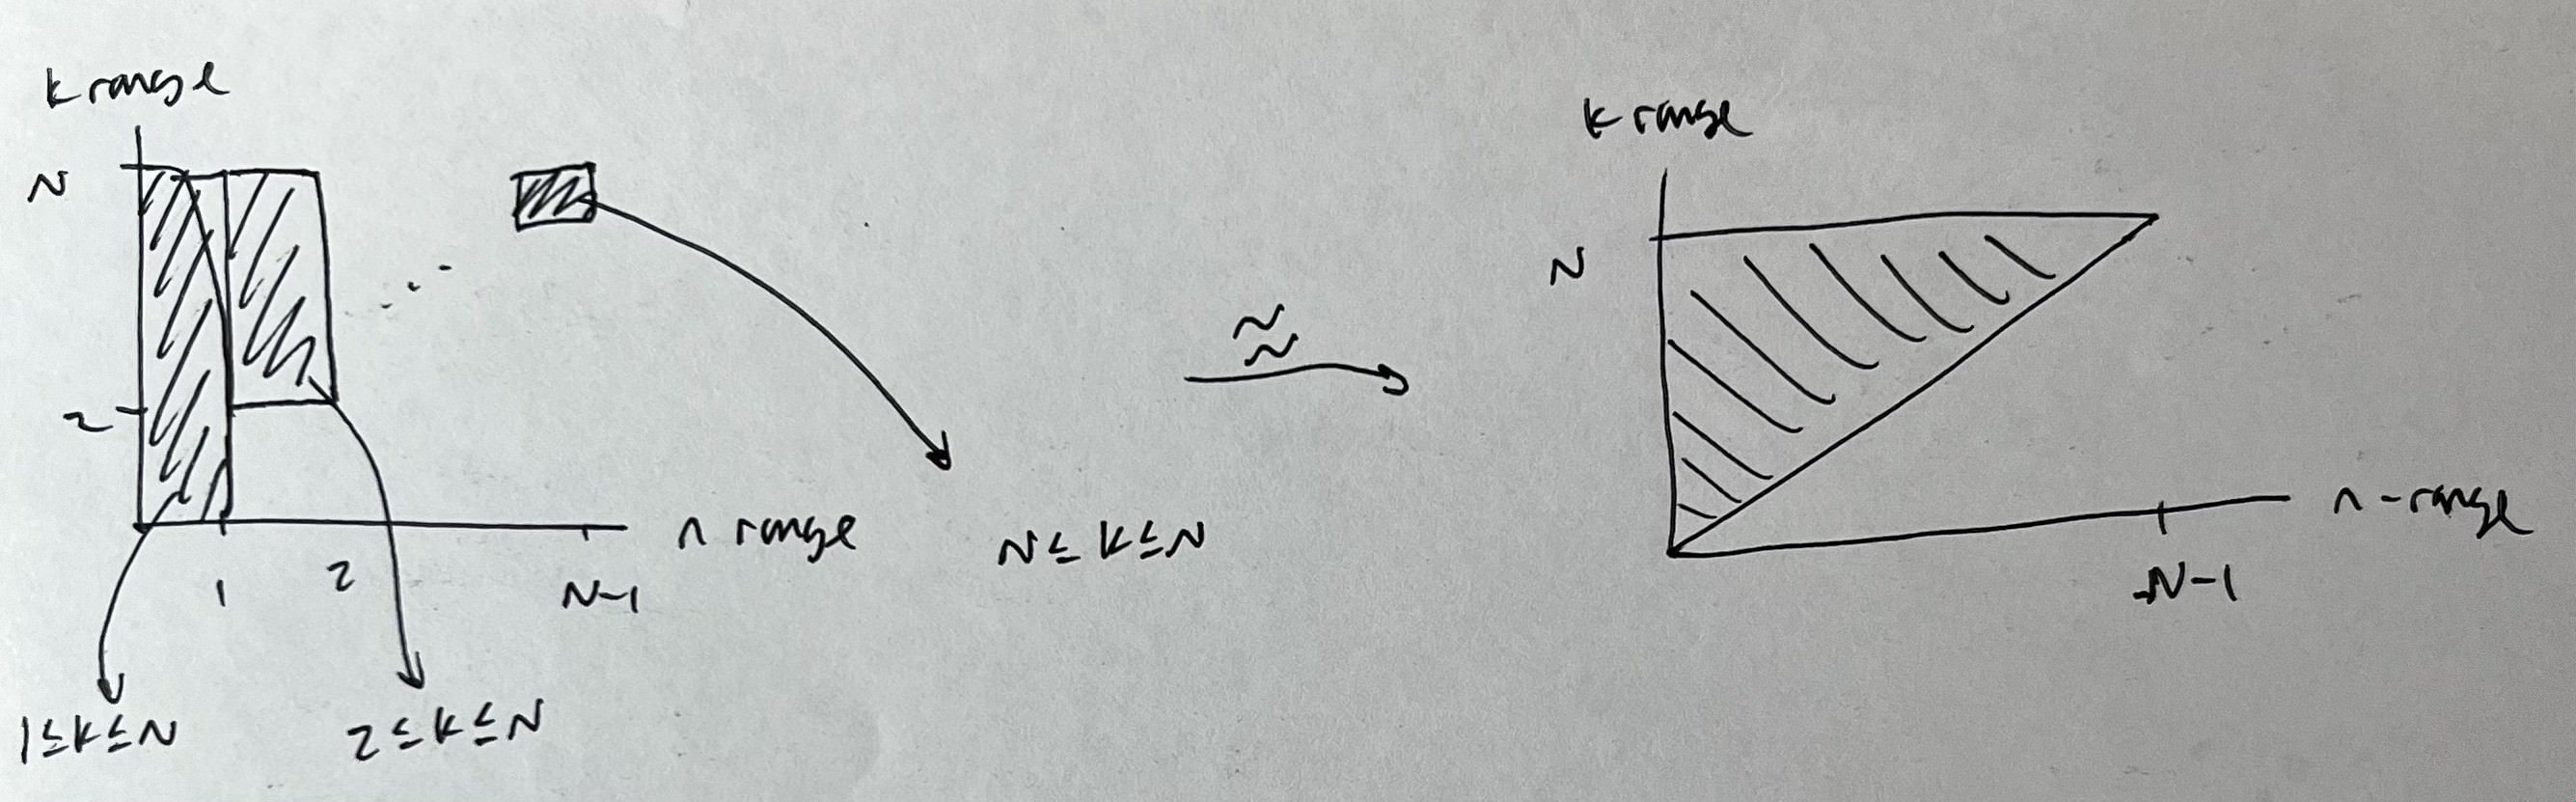 k range
N
2
n range
1
2
N-1
1≤k≤N
2≤k≤N
N≤k≤N
≈
k range
N
n-range
N-1